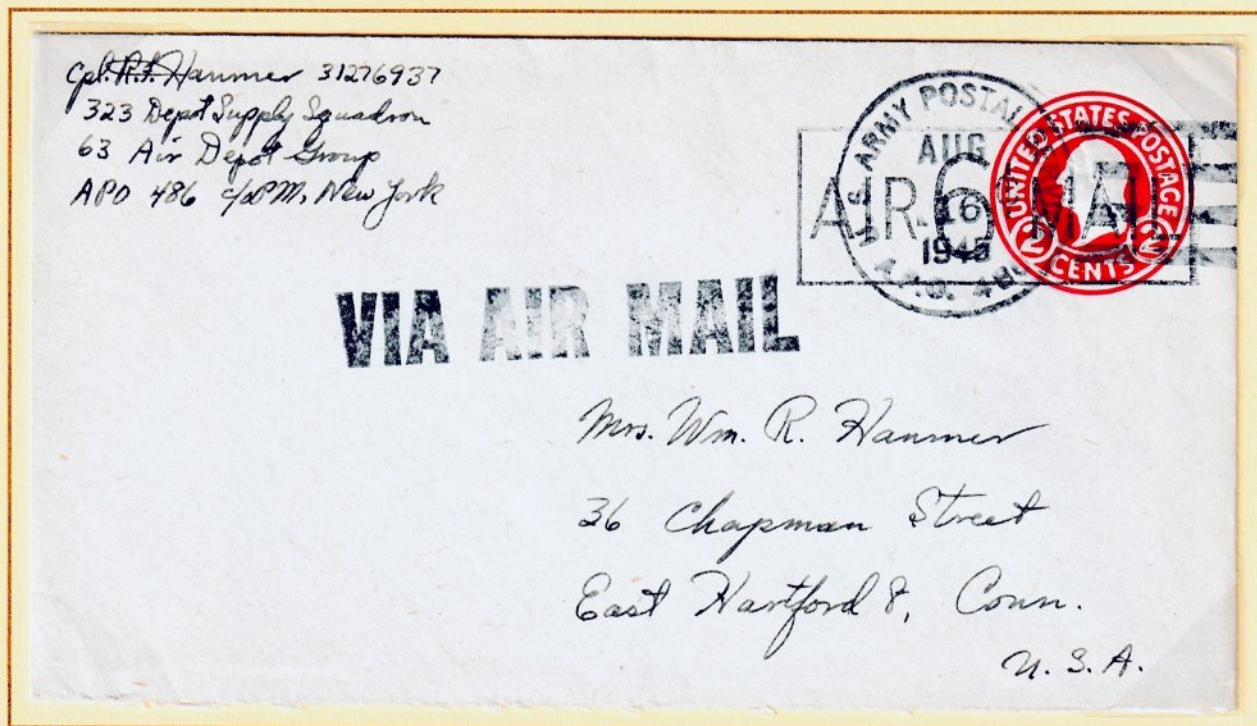 Cpl. R.F. Hanmer 31276937
323 Depot Supply Squadron
63 Air Depot Group
APO 486 c/o PM, New York
U.S. ARMY POSTAL
AUG
16
1945
A.P.O.
AIR 6¢ MAIL
UNITED STATES POSTAGE
2 CENTS 2
VIA AIR MAIL
Mrs. Wm. R. Hanmer
36 Chapman Street
East Hartford 8, Conn.
U. S. A.